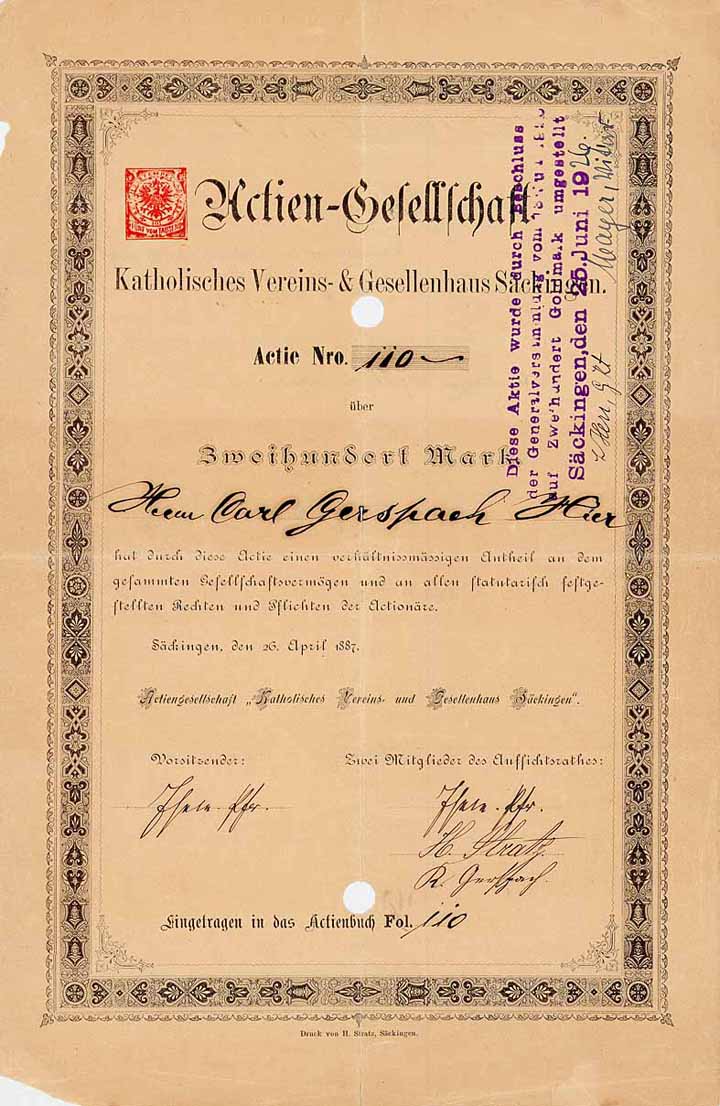 Actien-Gesellschaft
Katholisches Vereins- & Gesellenhaus Säckingen.
Actie Nro. 110
über
Zweihundert Mark
Herrn Carl Gerspach Hier
hat durch diese Actie einen verhältnissmässigen Antheil an dem
gesammten Gesellschaftsvermögen und an allen statutarisch festge-
stellten Rechten und Pflichten der Actionäre.
Säckingen, den 26. April 1887.
Actiengesellschaft „Katholisches Vereins- und Gesellenhaus Säckingen".
Vorsitzender: Zwei Mitglieder des Aufsichtsrathes:
Pfr. Pfr.
H. Stratz
K. Gerspach.
Eingetragen in das Actienbuch Fol. 110
Druck von H. Stratz, Säckingen.
Diese Aktie wurde durch Beschluss
der Generalversammlung vom
auf Zweihundert Goldmark umgestellt
Säckingen, den 25. Juni 1926.
Mayer,